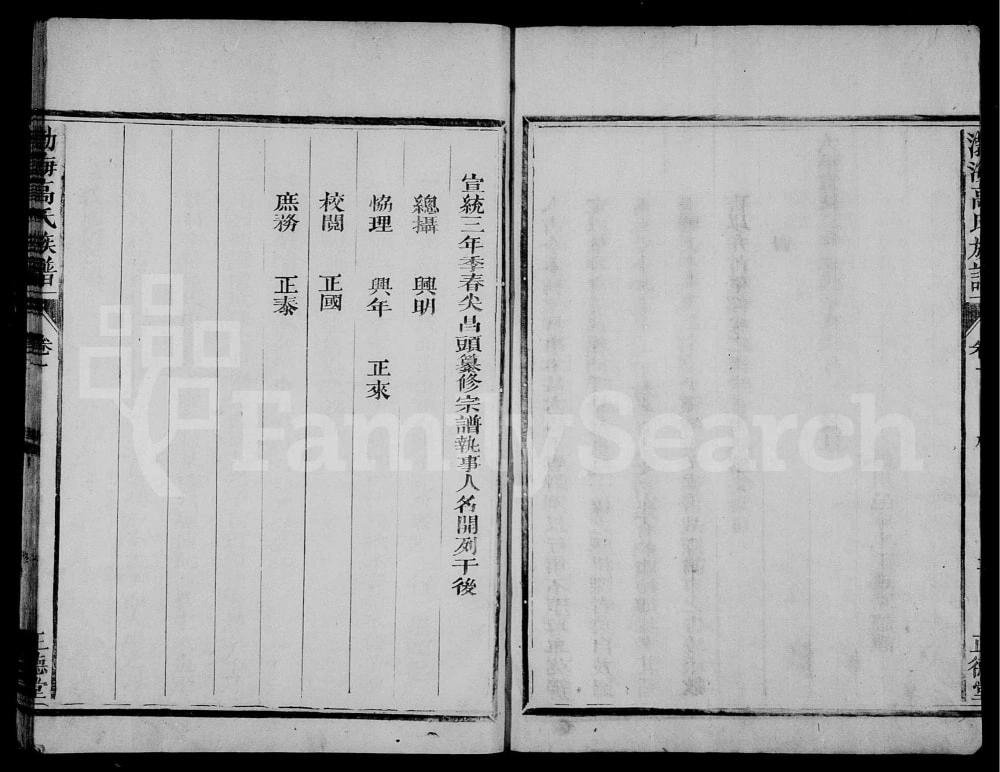 渤海高氏族譜
正德堂
宣統三年季春尖昌頭纂修宗譜執事人名開列于後
總攝 興明
恊理 興年 正來
校閱 正國
庶務 正泰
渤海高氏族譜
卷一
正德堂
FamilySearch